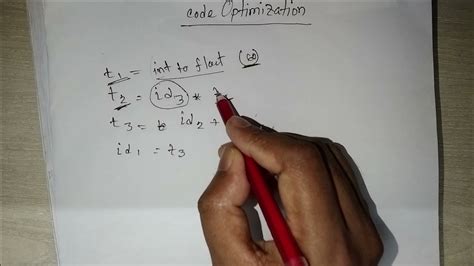 code Optimization
t1 = int to float (60)
t2 = id3 *
t3 = id2 +
id1 = t3